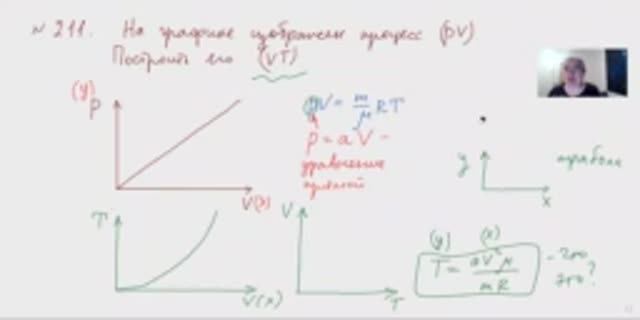 № 211. На графике изображен процесс (pV)
Построить его (VT)
(y)
P
V(x)
pV = m/μ RT
P = aV -
уравнение
прямой
y
x
парабола
T
V(x)
V
T
(y) (x)
T = aV²μ / mR
- что
это?